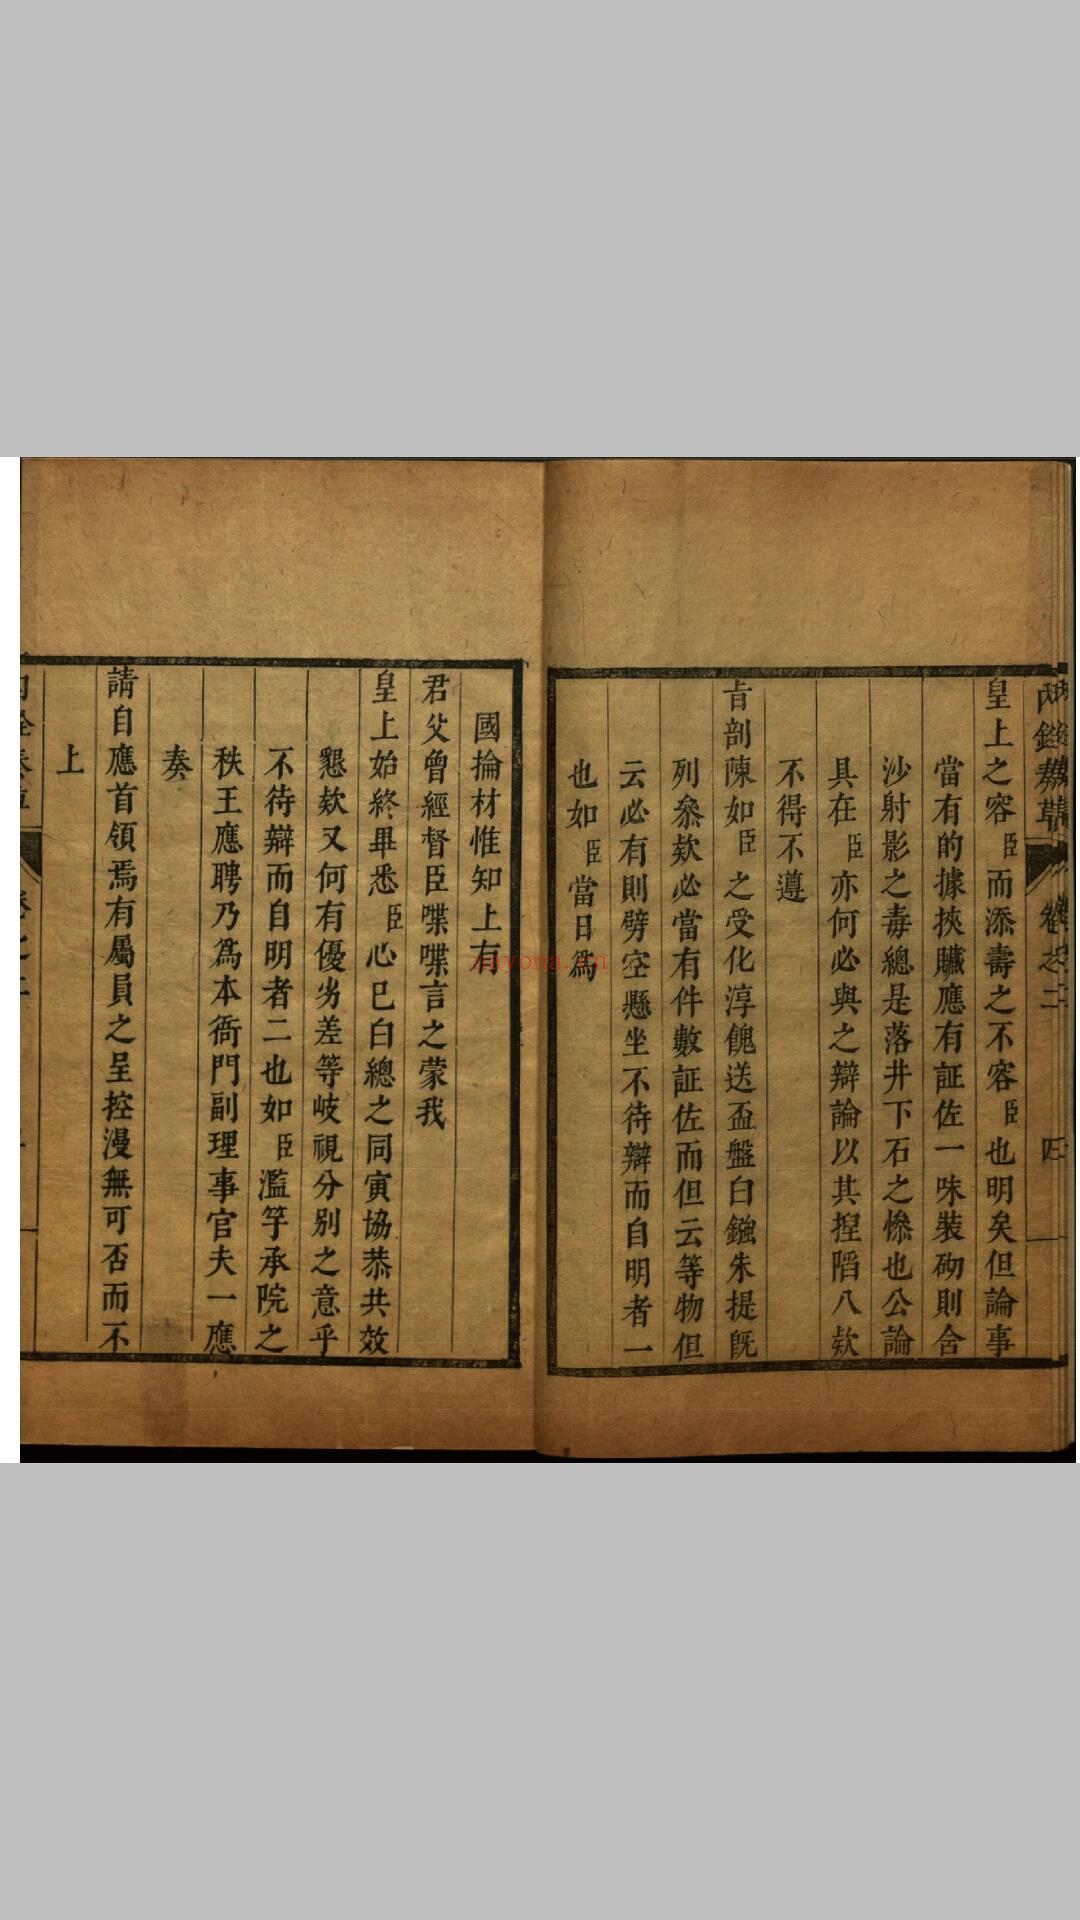 皇上之容臣而添壽之不容臣也明矣但論事
當有的據挾贜應有証佐一味裝砌則含
沙射影之毒總是落井下石之慘也公論
具在臣亦何必與之辯論以其揑陷八欵
不得不遵
旨剖陳如臣之受化淳餽送盃盤白鏹朱提旣
列叅欵必當有件數証佐而但云等物但
云必有則劈空懸坐不待辯而自明者一
也如臣當日爲
國掄材惟知上有
君父曾經督臣喋喋言之蒙我
皇上始終畢悉臣心已白總之同寅協恭共效
懇欵又何有優劣差等岐視分别之意乎
不待辯而自明者二也如臣濫竽承院之
秩王應聘乃爲本衙門副理事官夫一應
奏
請自應首領焉有屬員之呈控漫無可否而不
上
卷之二
四